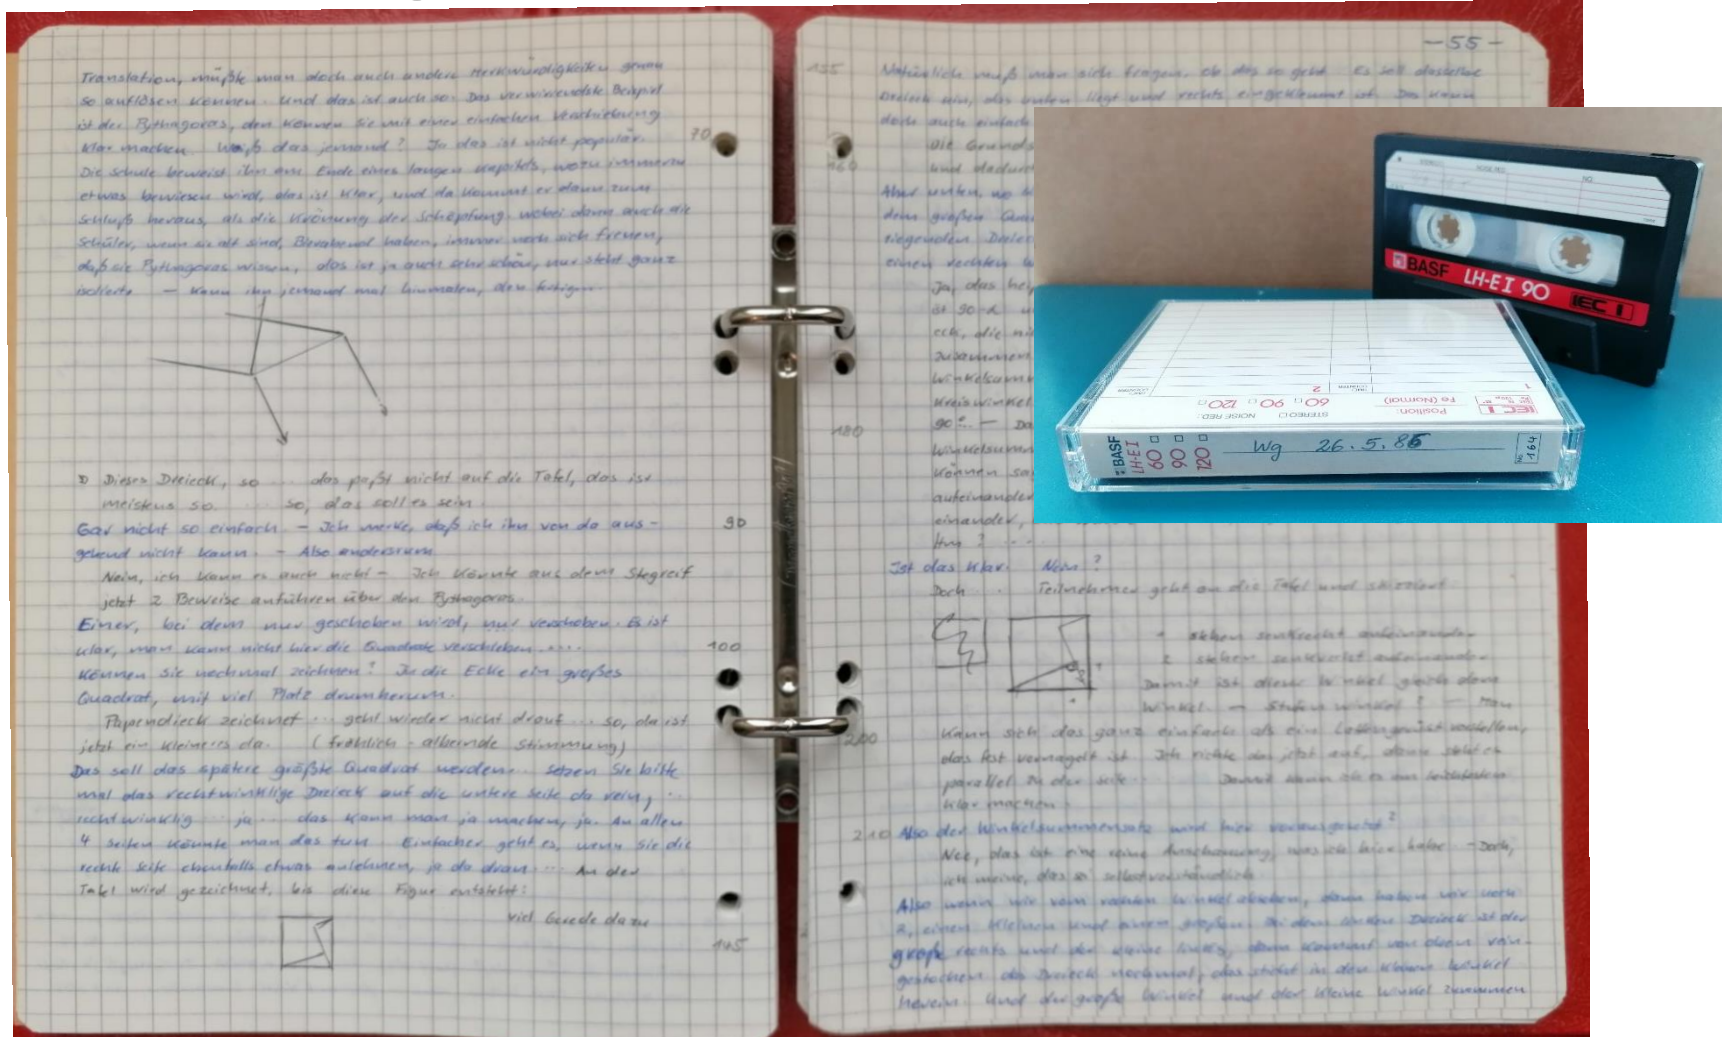 Translation, müßte man doch auch andere Merkwürdigkeiten genau
so auflösen können. Und das ist auch so. Das verwirrendste Beispiel
ist der Pythagoras, den können Sie mit einer einfachen Verschiebung
klar machen. Weiß das jemand? Ja das ist nicht populär.
70
Die Schule beweist ihn am Ende eines langen wozu immerzu
etwas bewiesen wird, das ist klar, und da kommt er dann zum
Schluß heraus, als die Krönung der Schöpfung. wobei dann auch die
Schüler, wenn sie alt sind, Bierabend haben, immer noch sich freuen,
daß sie Pythagoras wissen, das ist ja auch sehr schön, nur steht ganz
isoliert. — Kann ihn jemand mal hinmalen, den fertigen.
Dieses Dreieck, so ... das paßt nicht auf die Tafel, das ist
meistens so. ... so, das soll es sein.
Gar nicht so einfach. — Ich merke, daß ich ihn von da aus-
90
gehend nicht kann. — Also andersrum
Nein, ich kann es auch nicht — Ich könnte aus dem Stegreif
jetzt 2 Beweise anführen über den Pythagoras.
Einer, bei dem nur geschoben wird, nur verschoben. Es ist
klar, man kann nicht hier die Quadrate verschieben ....
100
Können Sie nochmal zeichnen? In die Ecke ein großes
Quadrat, mit viel Platz drumherum.
Papendieck zeichnet ... geht wieder nicht drauf ... so, da ist
jetzt ein kleineres da. (fröhlich-albernde Stimmung)
Das soll das spätere größte Quadrat werden. Setzen Sie bitte
mal das rechtwinklige Dreieck auf die untere Seite da rein, ..
rechtwinklig ... ja ... das kann man ja machen, ja. An allen
4 Seiten könnte man das tun. Einfacher geht es, wenn Sie die
rechte Seite ebenfalls etwas anlehnen, ja da dran ... An der
Tafel wird gezeichnet, bis diese Figur entsteht:
viel Gerede dazu
145
— 55 —
155
Natürlich muß man sich fragen, ob das so geht. Es soll dasselbe
Dreieck sein, das unten liegt und rechts eingeklemmt ist. Das kann
doch auch einfach
Die Grunds
160
und dadurch
Aber unten, wo
dem großen Quad
liegenden Dreiec
einen rechten W
Ja, das hei
ist 90-α
eck, die ni
zusammen
Winkelsumm
Kreiswinkel
90 — Da
180
Winkelsumm
können sa
aufeinander
einander,
Hm? ....
Ist das klar. Nein?
Doch ... Teilnehmer geht an die Tafel und skizziert
stehen senkrecht aufeinander
2 stehen senkrecht aufeinander
Damit ist dieser Winkel gleich dem
Winkel. — Stufenwinkel? — Man
kann sich das ganz einfach als ein Lattengerüst vorstellen,
200
das fest vernagelt ist. Ich richte das jetzt auf, dann steht es
parallel zu der Seite. Damit kann ich es am leichtesten
klar machen.
210
Also der Winkelsummensatz wird hier vorausgesetzt?
Nee, das ist eine reine Anschauung, was ich hier habe — Doch,
ich meine, das ist selbstverständlich.
Also wenn wir vom rechten Winkel absehen, dann haben wir noch
2, einen kleinen und einen großen. Bei dem linken Dreieck ist der
große rechts und der kleine links, dann kommt von oben rein-
gestochen das Dreieck nochmal, das steht in den kleinen Winkel
herein. Und der große Winkel und der kleine Winkel zusammen
BASF
LH-EI 90
IEC I
NOISE RED.
NO.
IEC I
Position:
Fe (Normal)
60 90 120
STEREO NOISE RED.:
1
2
BASF
LH-EI
60
90
120
Wg 26.5.86
No. 164